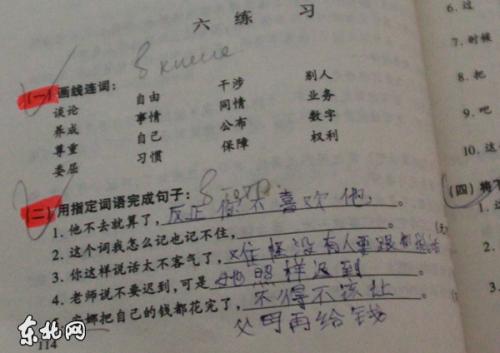 六 练 习
в книге
(一) 画线连词:
谈论 自由 干涉 别人
养成 事情 同情 业务
尊重 自己 公布 数字
委屈 习惯 保障 权利
(二) 用指定词语完成句子:
1. 他不去就算了,反正你不喜欢他。
2. 这个词我怎么记也记不住,
3. 你这样说话太不客气了,怪没有人要跟你说话
4. 老师说不要迟到,可是她照样迟到。
娜把自己的钱都花完了,不得不该让
父母再给钱
114
东北网
6. 过
7. 时候
8. 把
9. 吧
10. 这
(四) 将下
1.